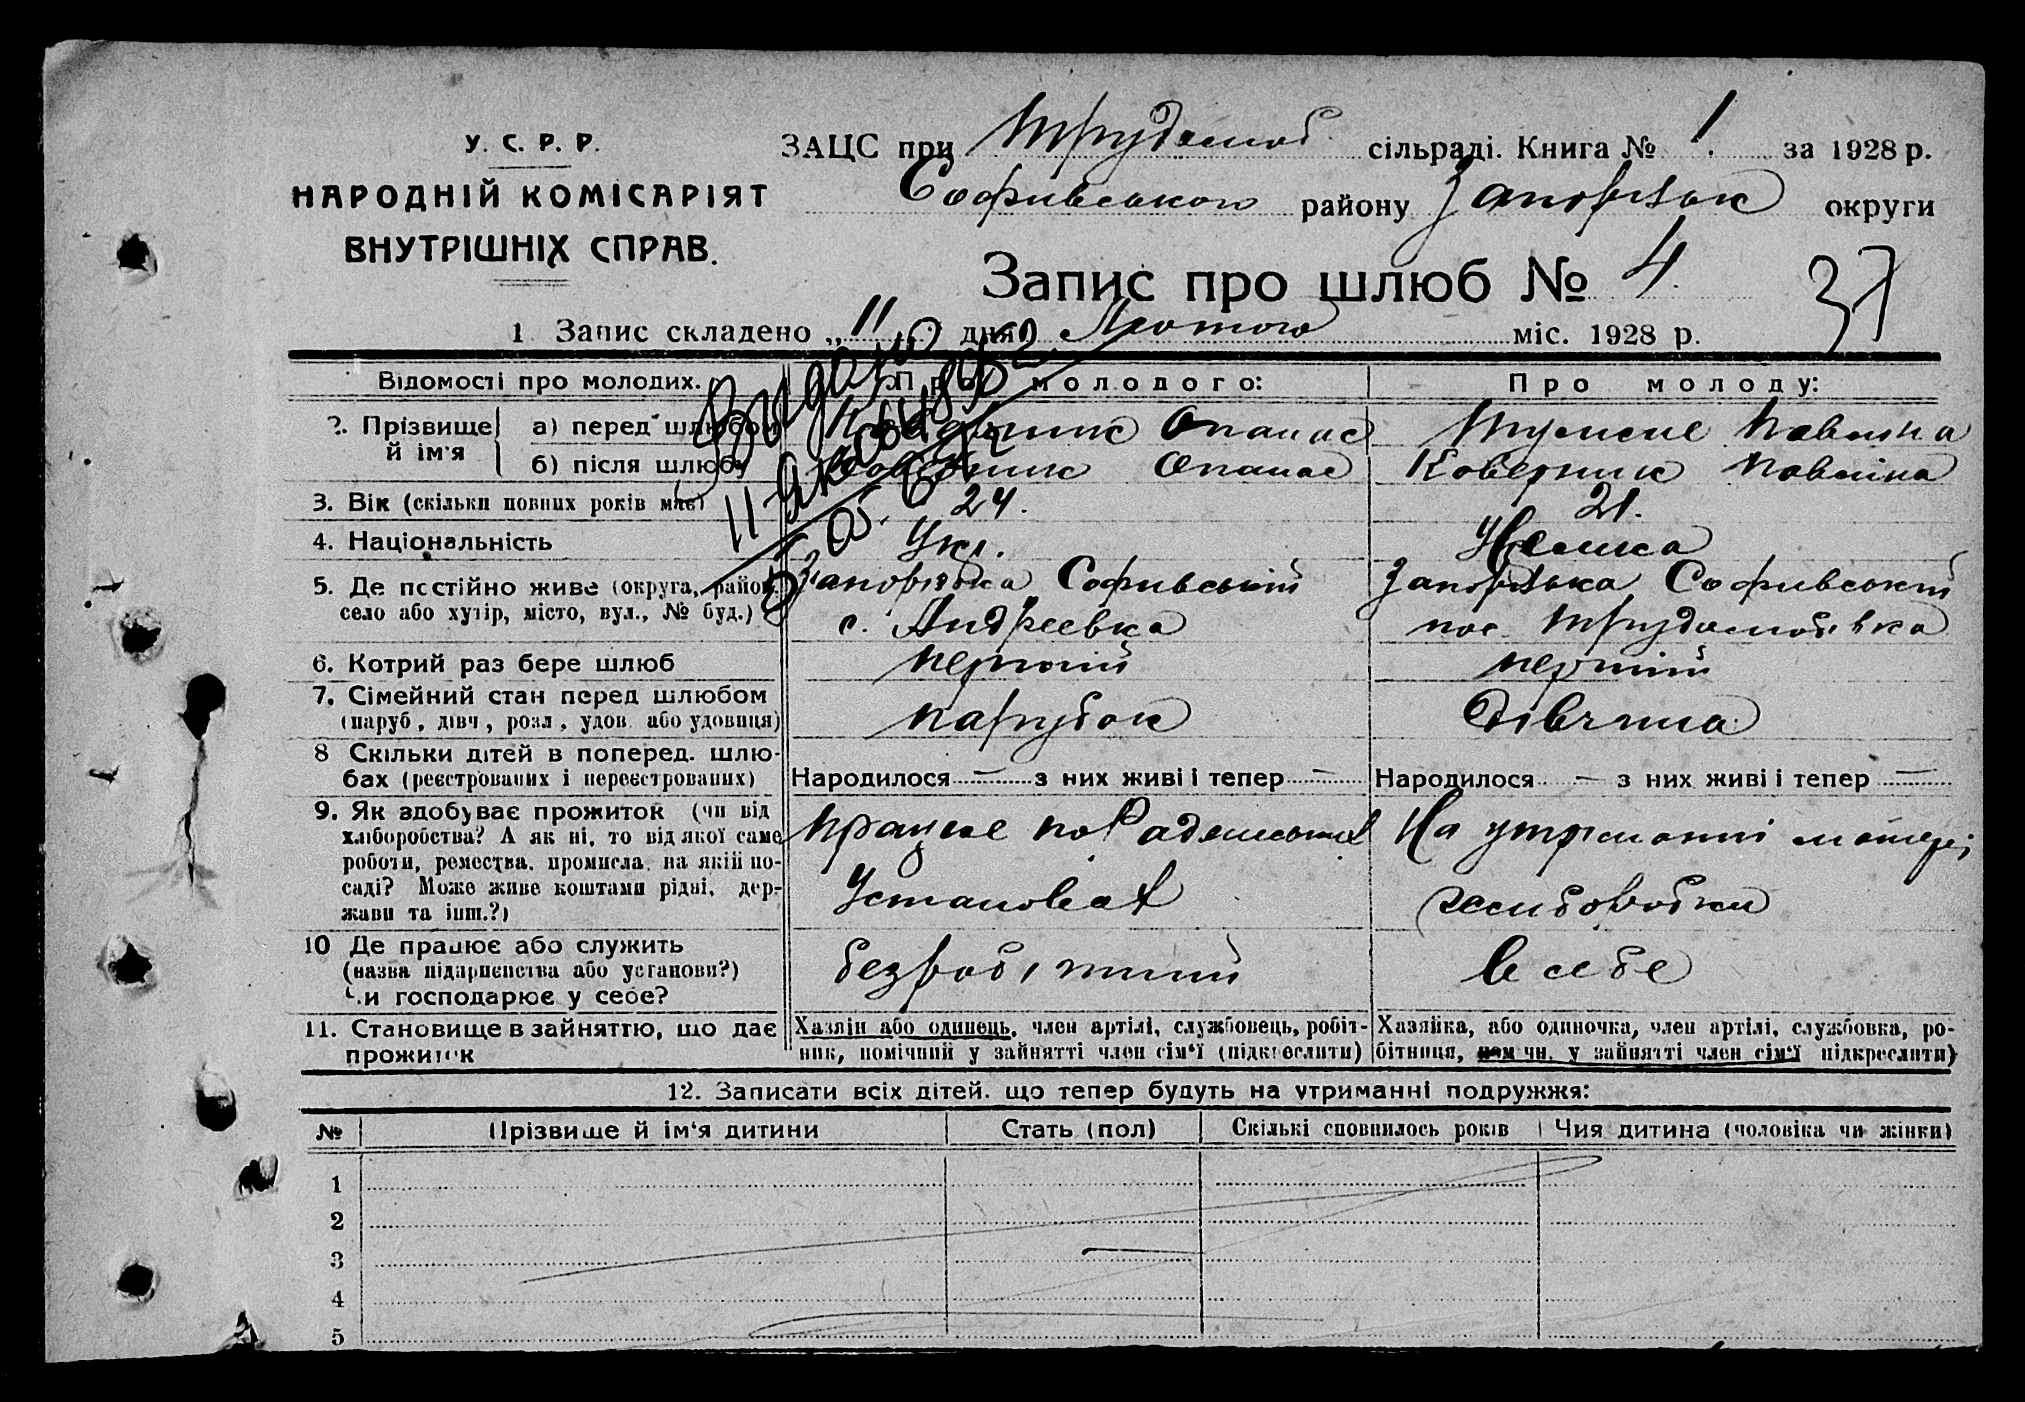 У. С. Р. Р.
НАРОДНІЙ КОМІСАРІЯТ
ВНУТРІШНІХ СПРАВ.
ЗАЦС при Трудолюб сільраді. Книга № 1 за 1928 р.
Софиевського району Запорізьк округи
Запис про шлюб № 4
37
1 Запис складено „11" дня Лютого міс. 1928 р.
Відомості про молодих. Про молодого: Про молоду:
2. Прізвище й ім'я а) перед шлюбом Опанас Павлина
б) після шлюбу Опанас Коверник Павлина
3. Вік (скільки повних років має) 24. 21.
4. Національність Укр. Немка
5. Де постійно живе (округа, район, Запорізька Софиевський Запорізька Софиевський
село або хутір, місто, вул., № буд.) с. Андреевка пос. Трудолюбовка
6. Котрий раз бере шлюб перший перший
7. Сімейний стан перед шлюбом
(паруб., дівч., розл., удов. або удовиця) парубок Дівчина
8 Скільки дітей в поперед. шлю-
бах (реєстрованих і нереєстрованих) Народилося — з них живі і тепер — Народилося — з них живі і тепер —
9. Як здобуває прожиток (чи від
хліборобства? А як ні, то від якої саме працює по Радянських На утриманні матері
роботи, ремества, промисла, на якій по-
саді? Може живе коштами рідні, дер- Установах хліборобки
жави та інш.?)
10 Де працює або служить
(назва підприємства або установи?) безробітний в себе
Чи господарює у себе?
11. Становище в зайняттю, що дає Хазяїн або одинець, член артілі, службовець, робіт- Хазяйка, або одиночка, член артілі, службовка, ро-
прожиток ник, помічний у зайнятті член сім'ї (підкреслити) бітниця, помічн. у зайнятті член сім'ї підкреслити)
12. Записати всіх дітей, що тепер будуть на утриманні подружжя:
№ Прізвище й ім'я дитини Стать (пол) Скількі сповнилось років Чия дитина (чоловіка чи жінки)
1
2
3
4
5